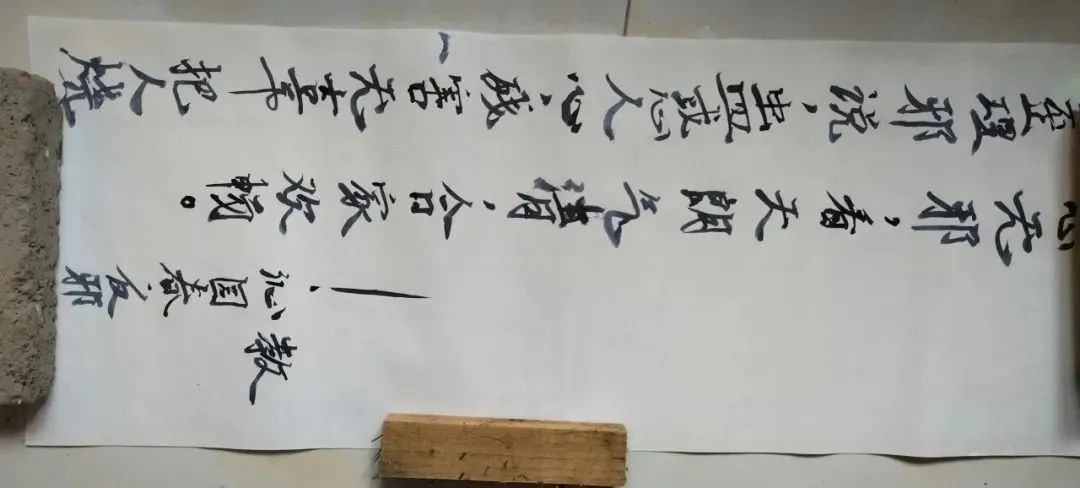 歪理邪说，蛊惑人心，残害无辜把人烧
心无邪，看天朗气清，合家欢。
——沁园春·反邪
教